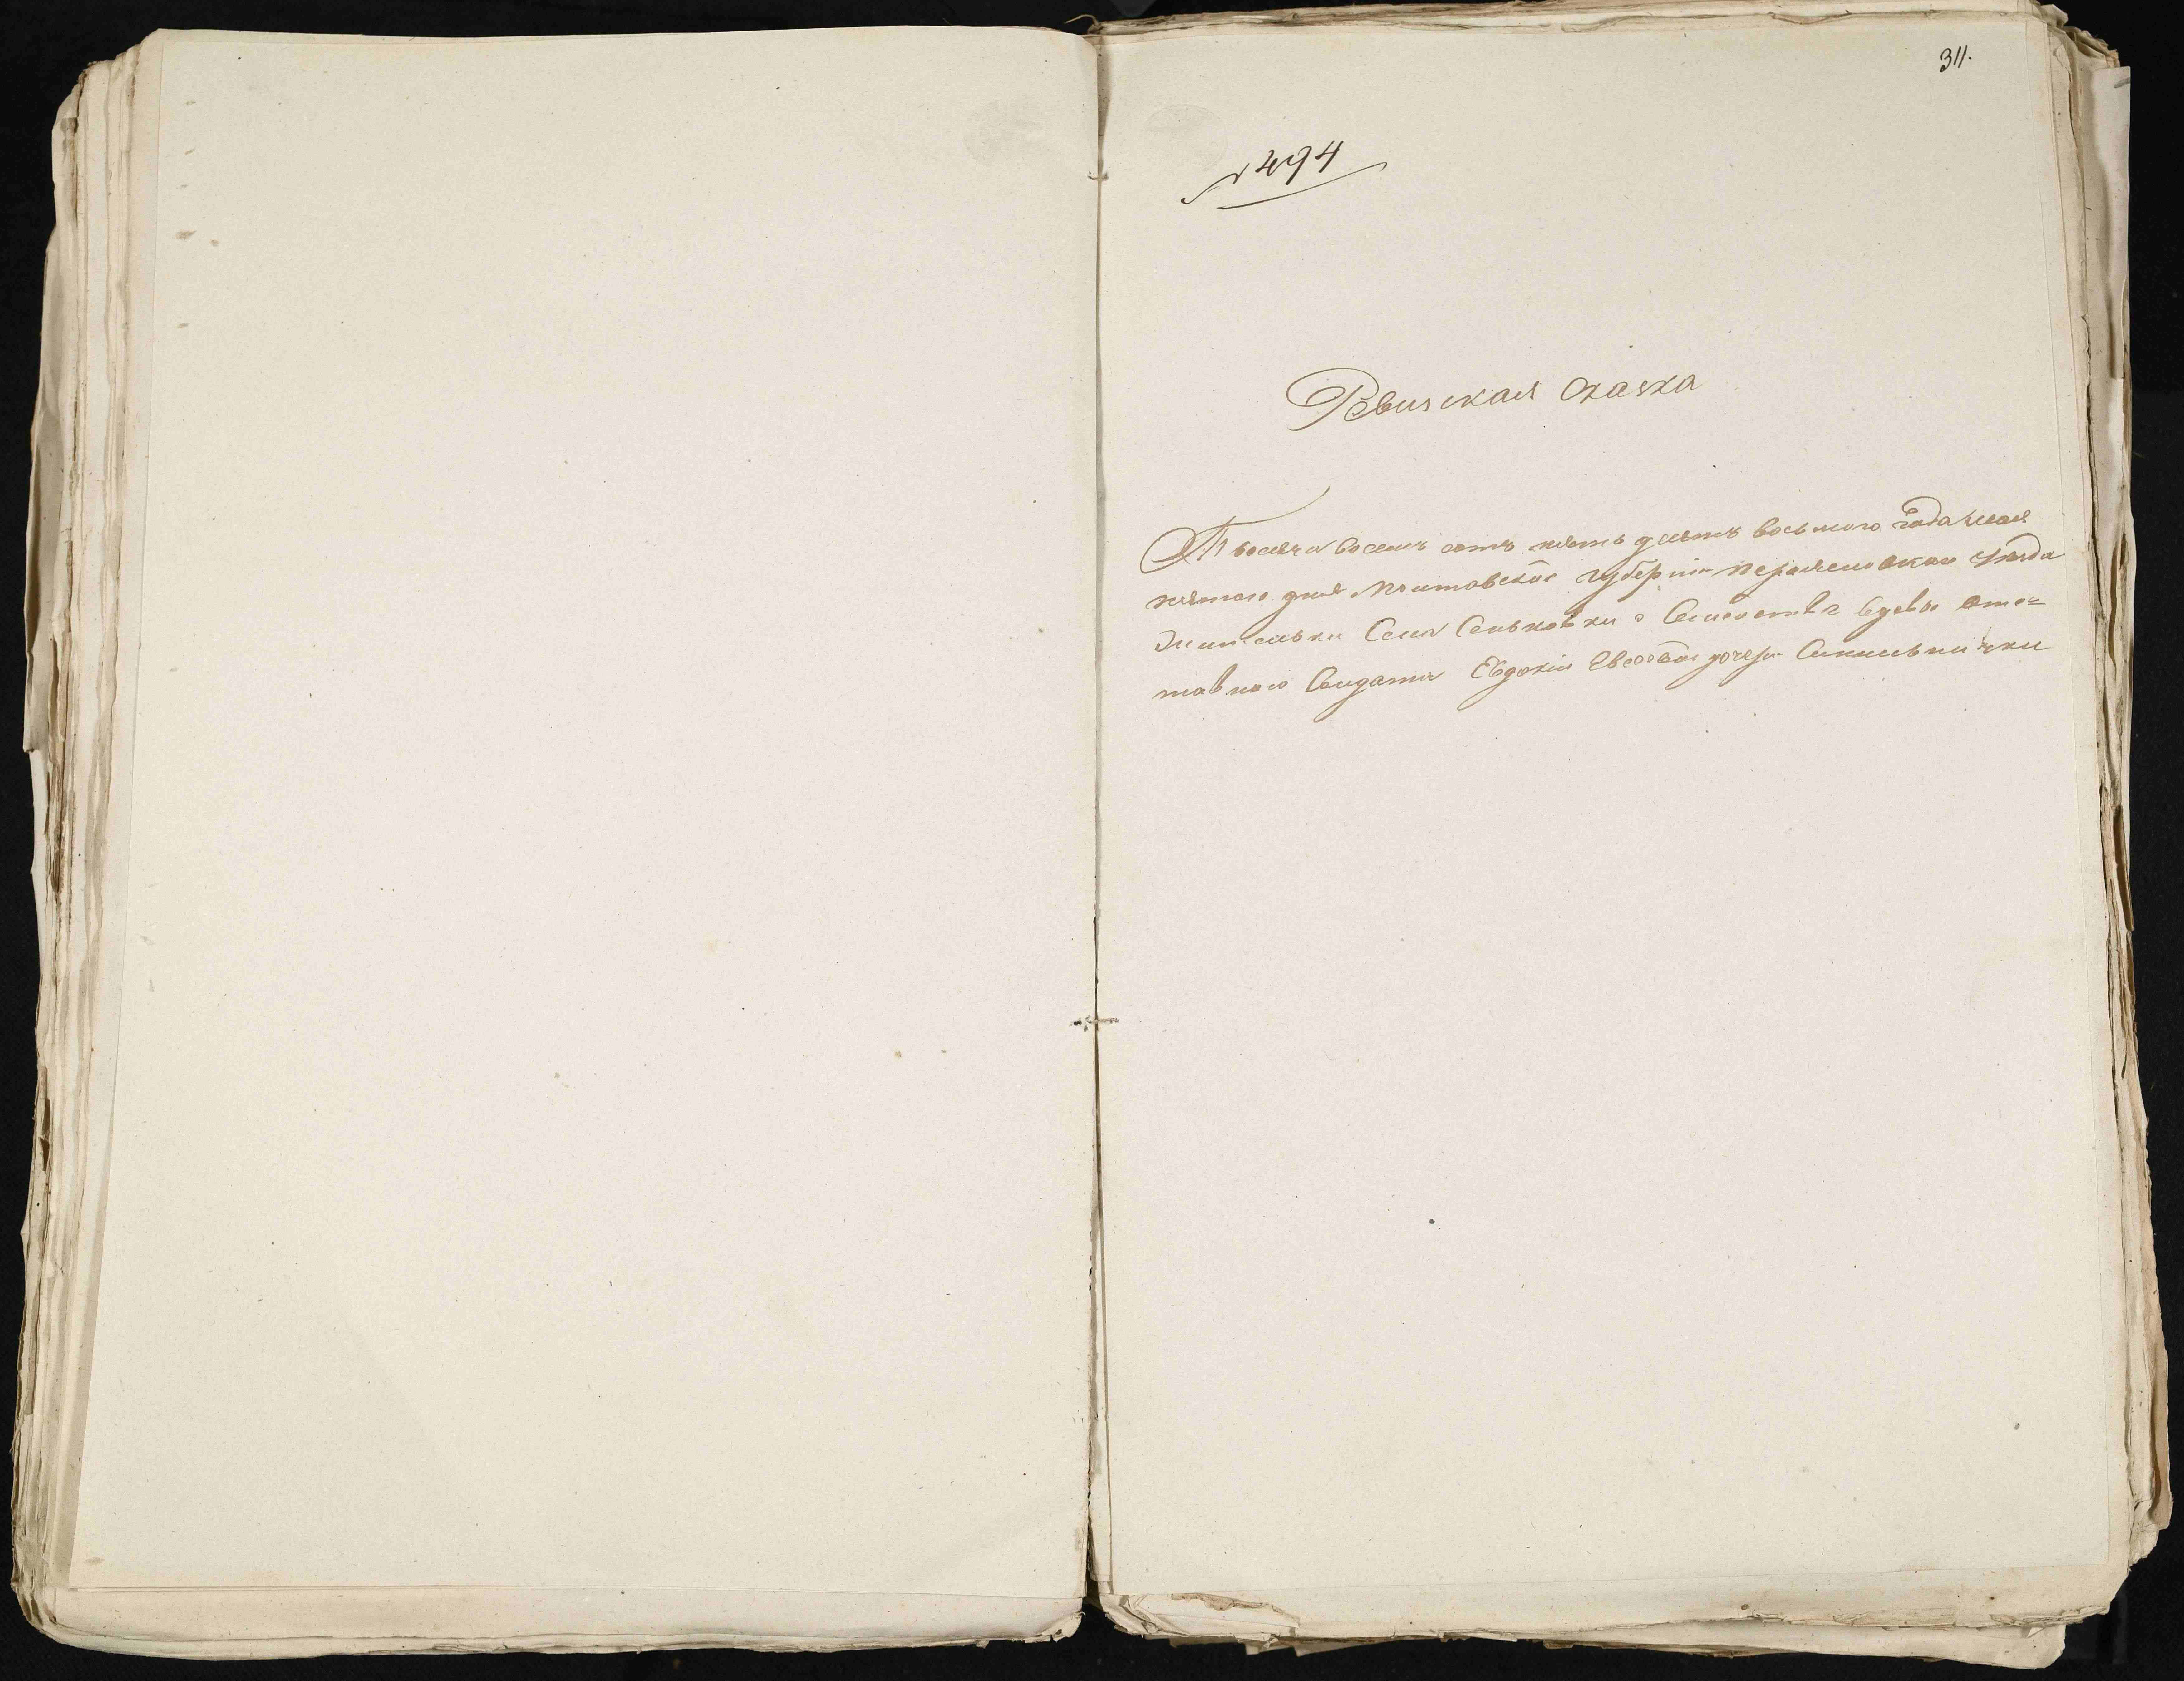 311.
№ 494
Ревизская Сказка
Тысяча восемь сотъ пять десятъ восьмого года мая
пятого дня Полтавской губерніи Переяславскаго уезда
жительки Села Сеньковки о Семействе вдовы отс=
тавного Солдата Евдокіи дочери